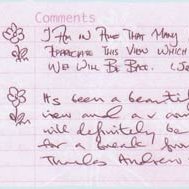 Comments
I Am in Awe That Many
This View Which
We Will Be Back.
It's been a beautiful
view and a
will definitely be
for a break from
Andrew